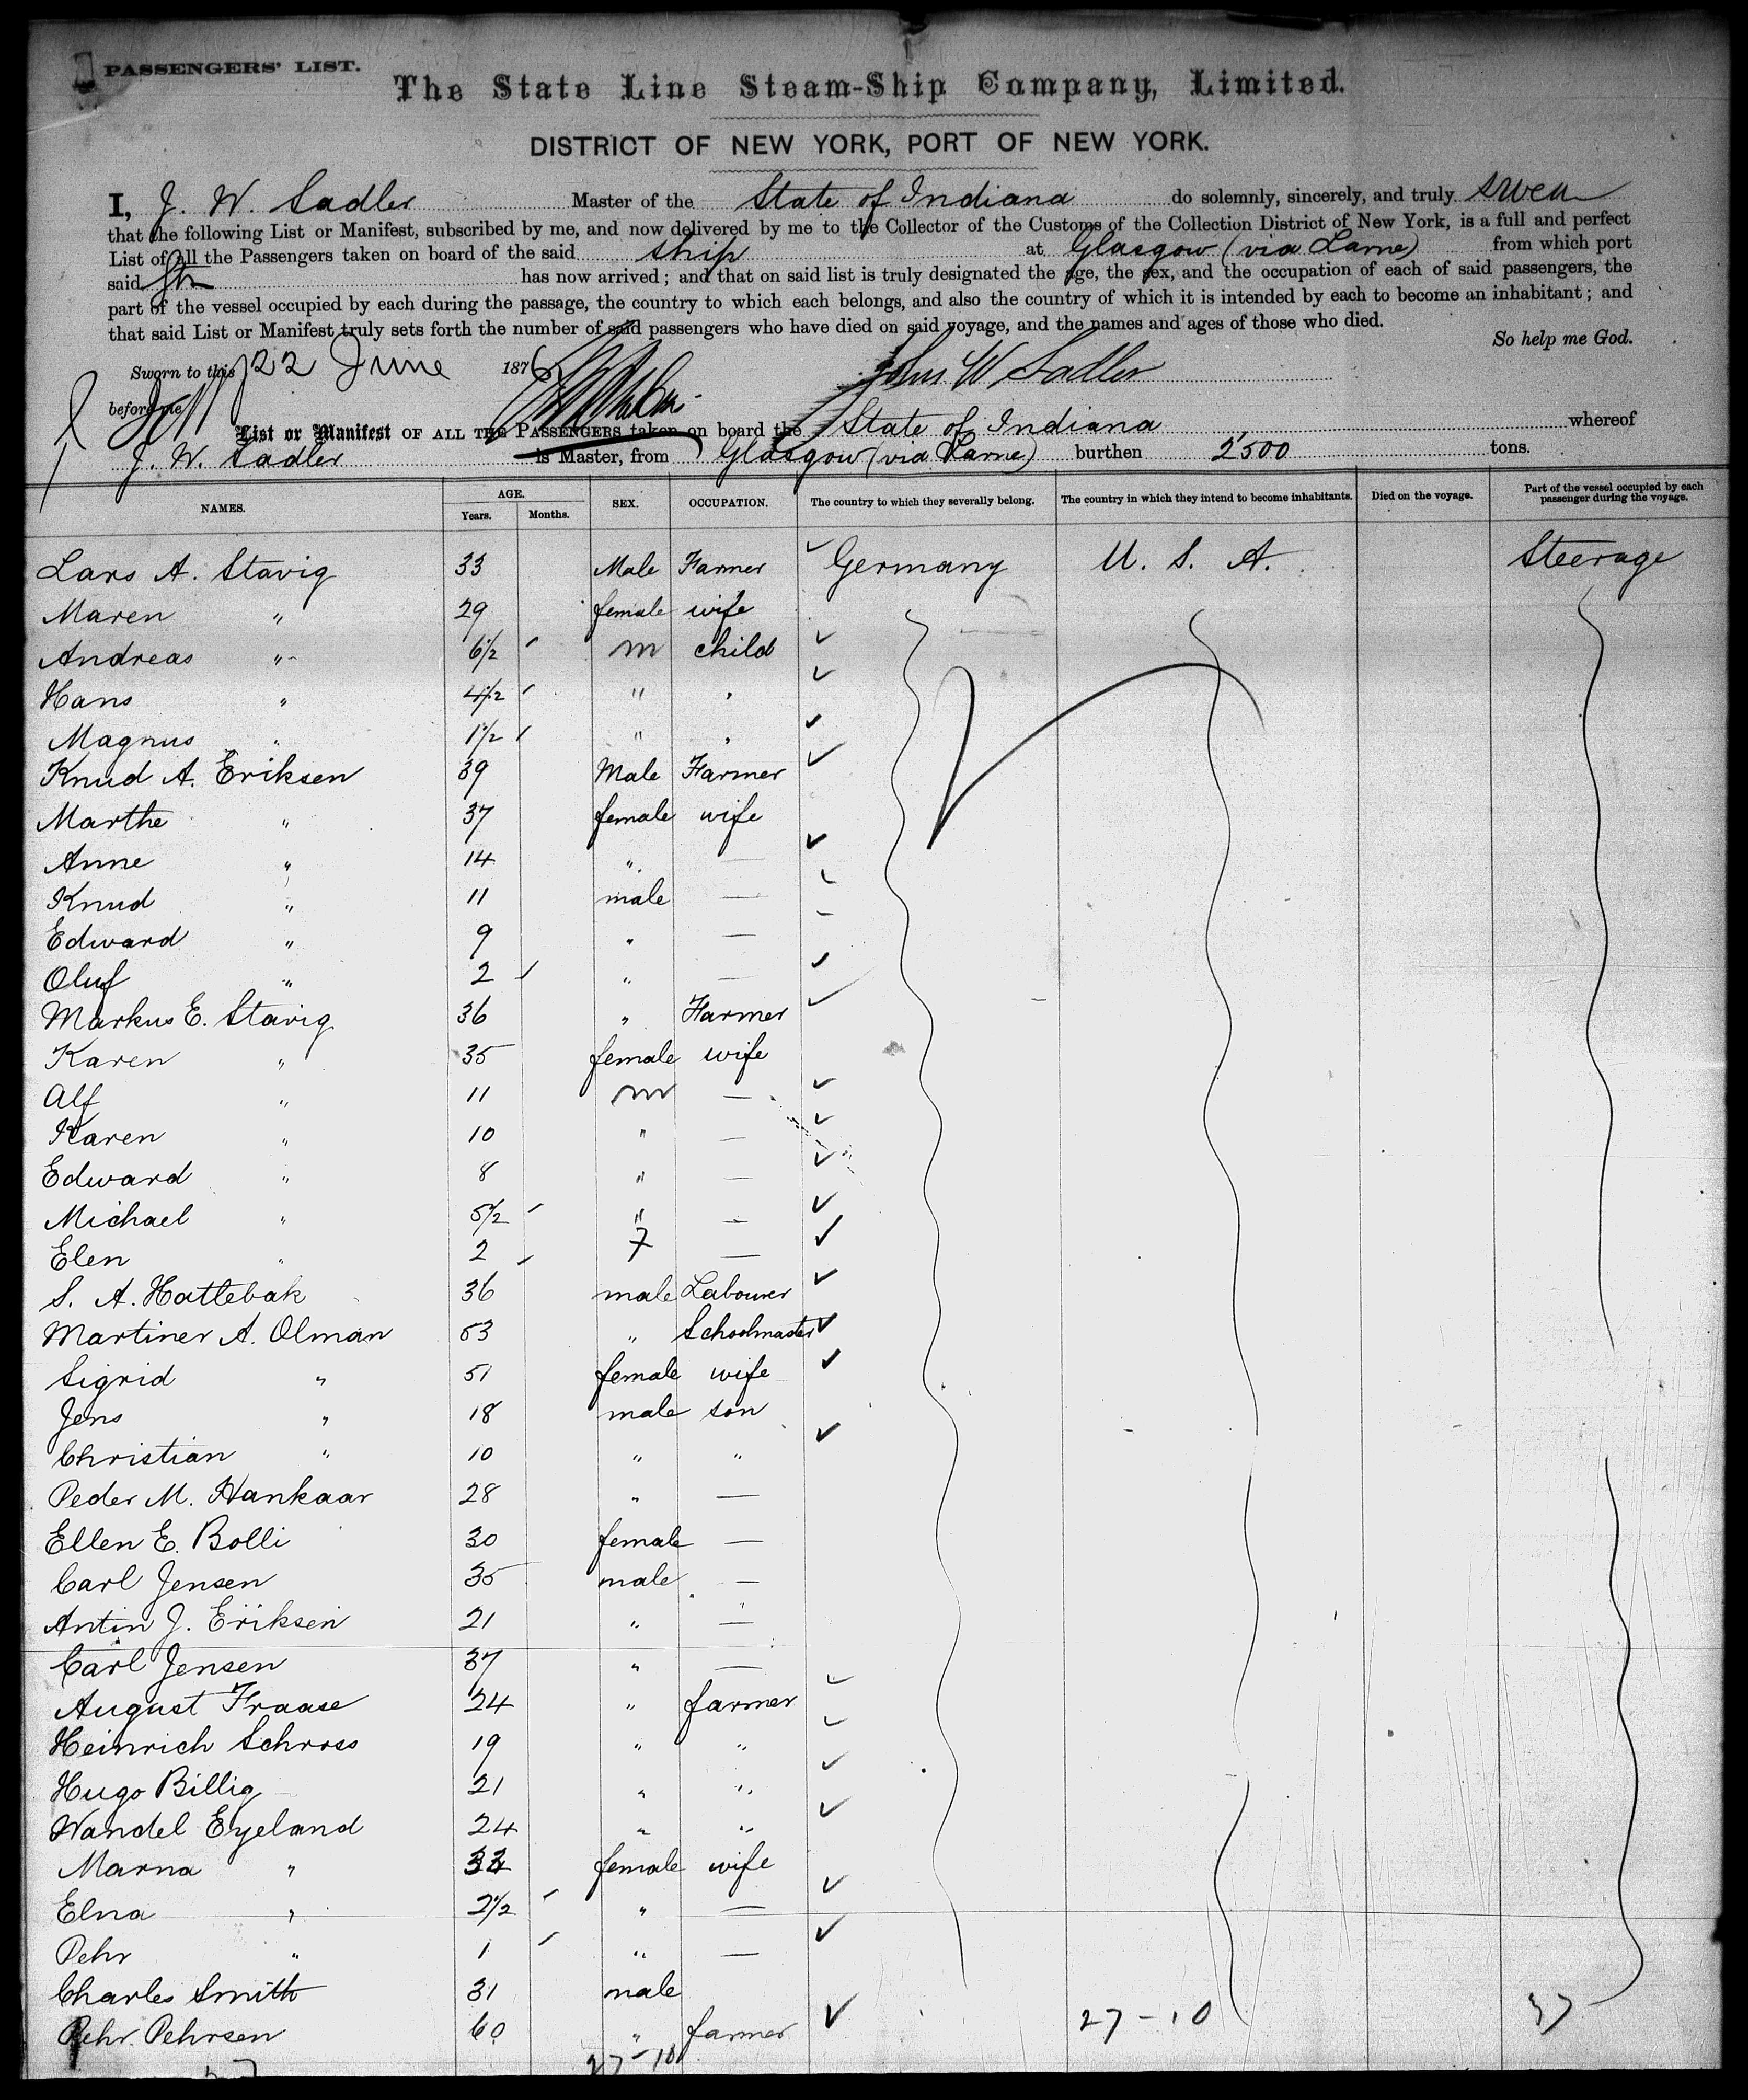 PASSENGERS' LIST.
The State Line Steam-Ship Company, Limited.
DISTRICT OF NEW YORK, PORT OF NEW YORK.
I, J. W. Sadler Master of the State of Indiana do solemnly, sincerely, and truly swear
that the following List or Manifest, subscribed by me, and now delivered by me to the Collector of the Customs of the Collection District of New York, is a full and perfect
List of all the Passengers taken on board of the said ship at Glasgow (via Larne) from which port
said Str has now arrived; and that on said list is truly designated the age, the sex, and the occupation of each of said passengers, the
part of the vessel occupied by each during the passage, the country to which each belongs, and also the country of which it is intended by each to become an inhabitant; and
that said List or Manifest truly sets forth the number of said passengers who have died on said voyage, and the names and ages of those who died.
So help me God.
Sworn to this 22 June 1876 John W Sadler
before me
List or Manifest OF ALL THE PASSENGERS taken on board the State of Indiana whereof
J. W. Sadler is Master, from Glasgow (via Larne) burthen 2500 tons.
NAMES. AGE. Years. Months. SEX. OCCUPATION. The country to which they severally belong. The country in which they intend to become inhabitants. Died on the voyage. Part of the vessel occupied by each passenger during the voyage.
Lars A. Stavig 33 Male Farmer Germany U. S. A. Steerage
Maren " 29 female wife
Andreas " 6½ m child
Hans " 4½ " "
Magnus " 1½ " "
Knud A. Eriksen 39 Male Farmer
Marthe " 37 female wife
Anne " 14 " —
Knud " 11 male —
Edward " 9 " —
Oluf " 2 " —
Markus E. Stavig 36 " Farmer
Karen " 35 female wife
Alf " 11 m —
Karen " 10 " —
Edward " 8 " —
Michael " 5½ " —
Elen " 2 f —
S. A. Hattebak 36 male Labourer
Martiner A. Olman 53 " Schoolmaster
Sigrid " 51 female wife
Jens " 18 male son
Christian " 10 " "
Peder M. Hankaar 28 " —
Ellen E. Bolli 30 female —
Carl Jensen 35 male —
Antin J. Eriksen 21 " —
Carl Jensen 37 " —
August Fraase 24 " farmer
Heinrich Schross 19 " "
Hugo Billig 21 " "
Wandel Eyeland 24 " "
Marna " female wife
Elna " 2½ " —
Pehr " 1 " —
Charles Smith 31 male
Pehr Pehrsen 60 " farmer 27-10 37
27-10